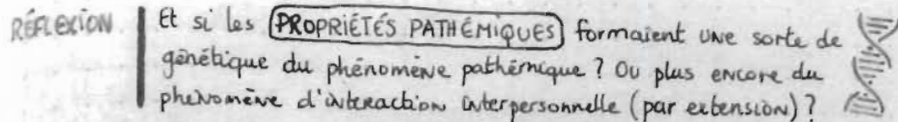 RÉFLEXION Et si les PROPRIÉTÉS PATHÉMIQUES formaient une sorte de
génétique du phénomène pathémique ? Ou plus encore du
phénomène d'interaction interpersonnelle (par extension) ?